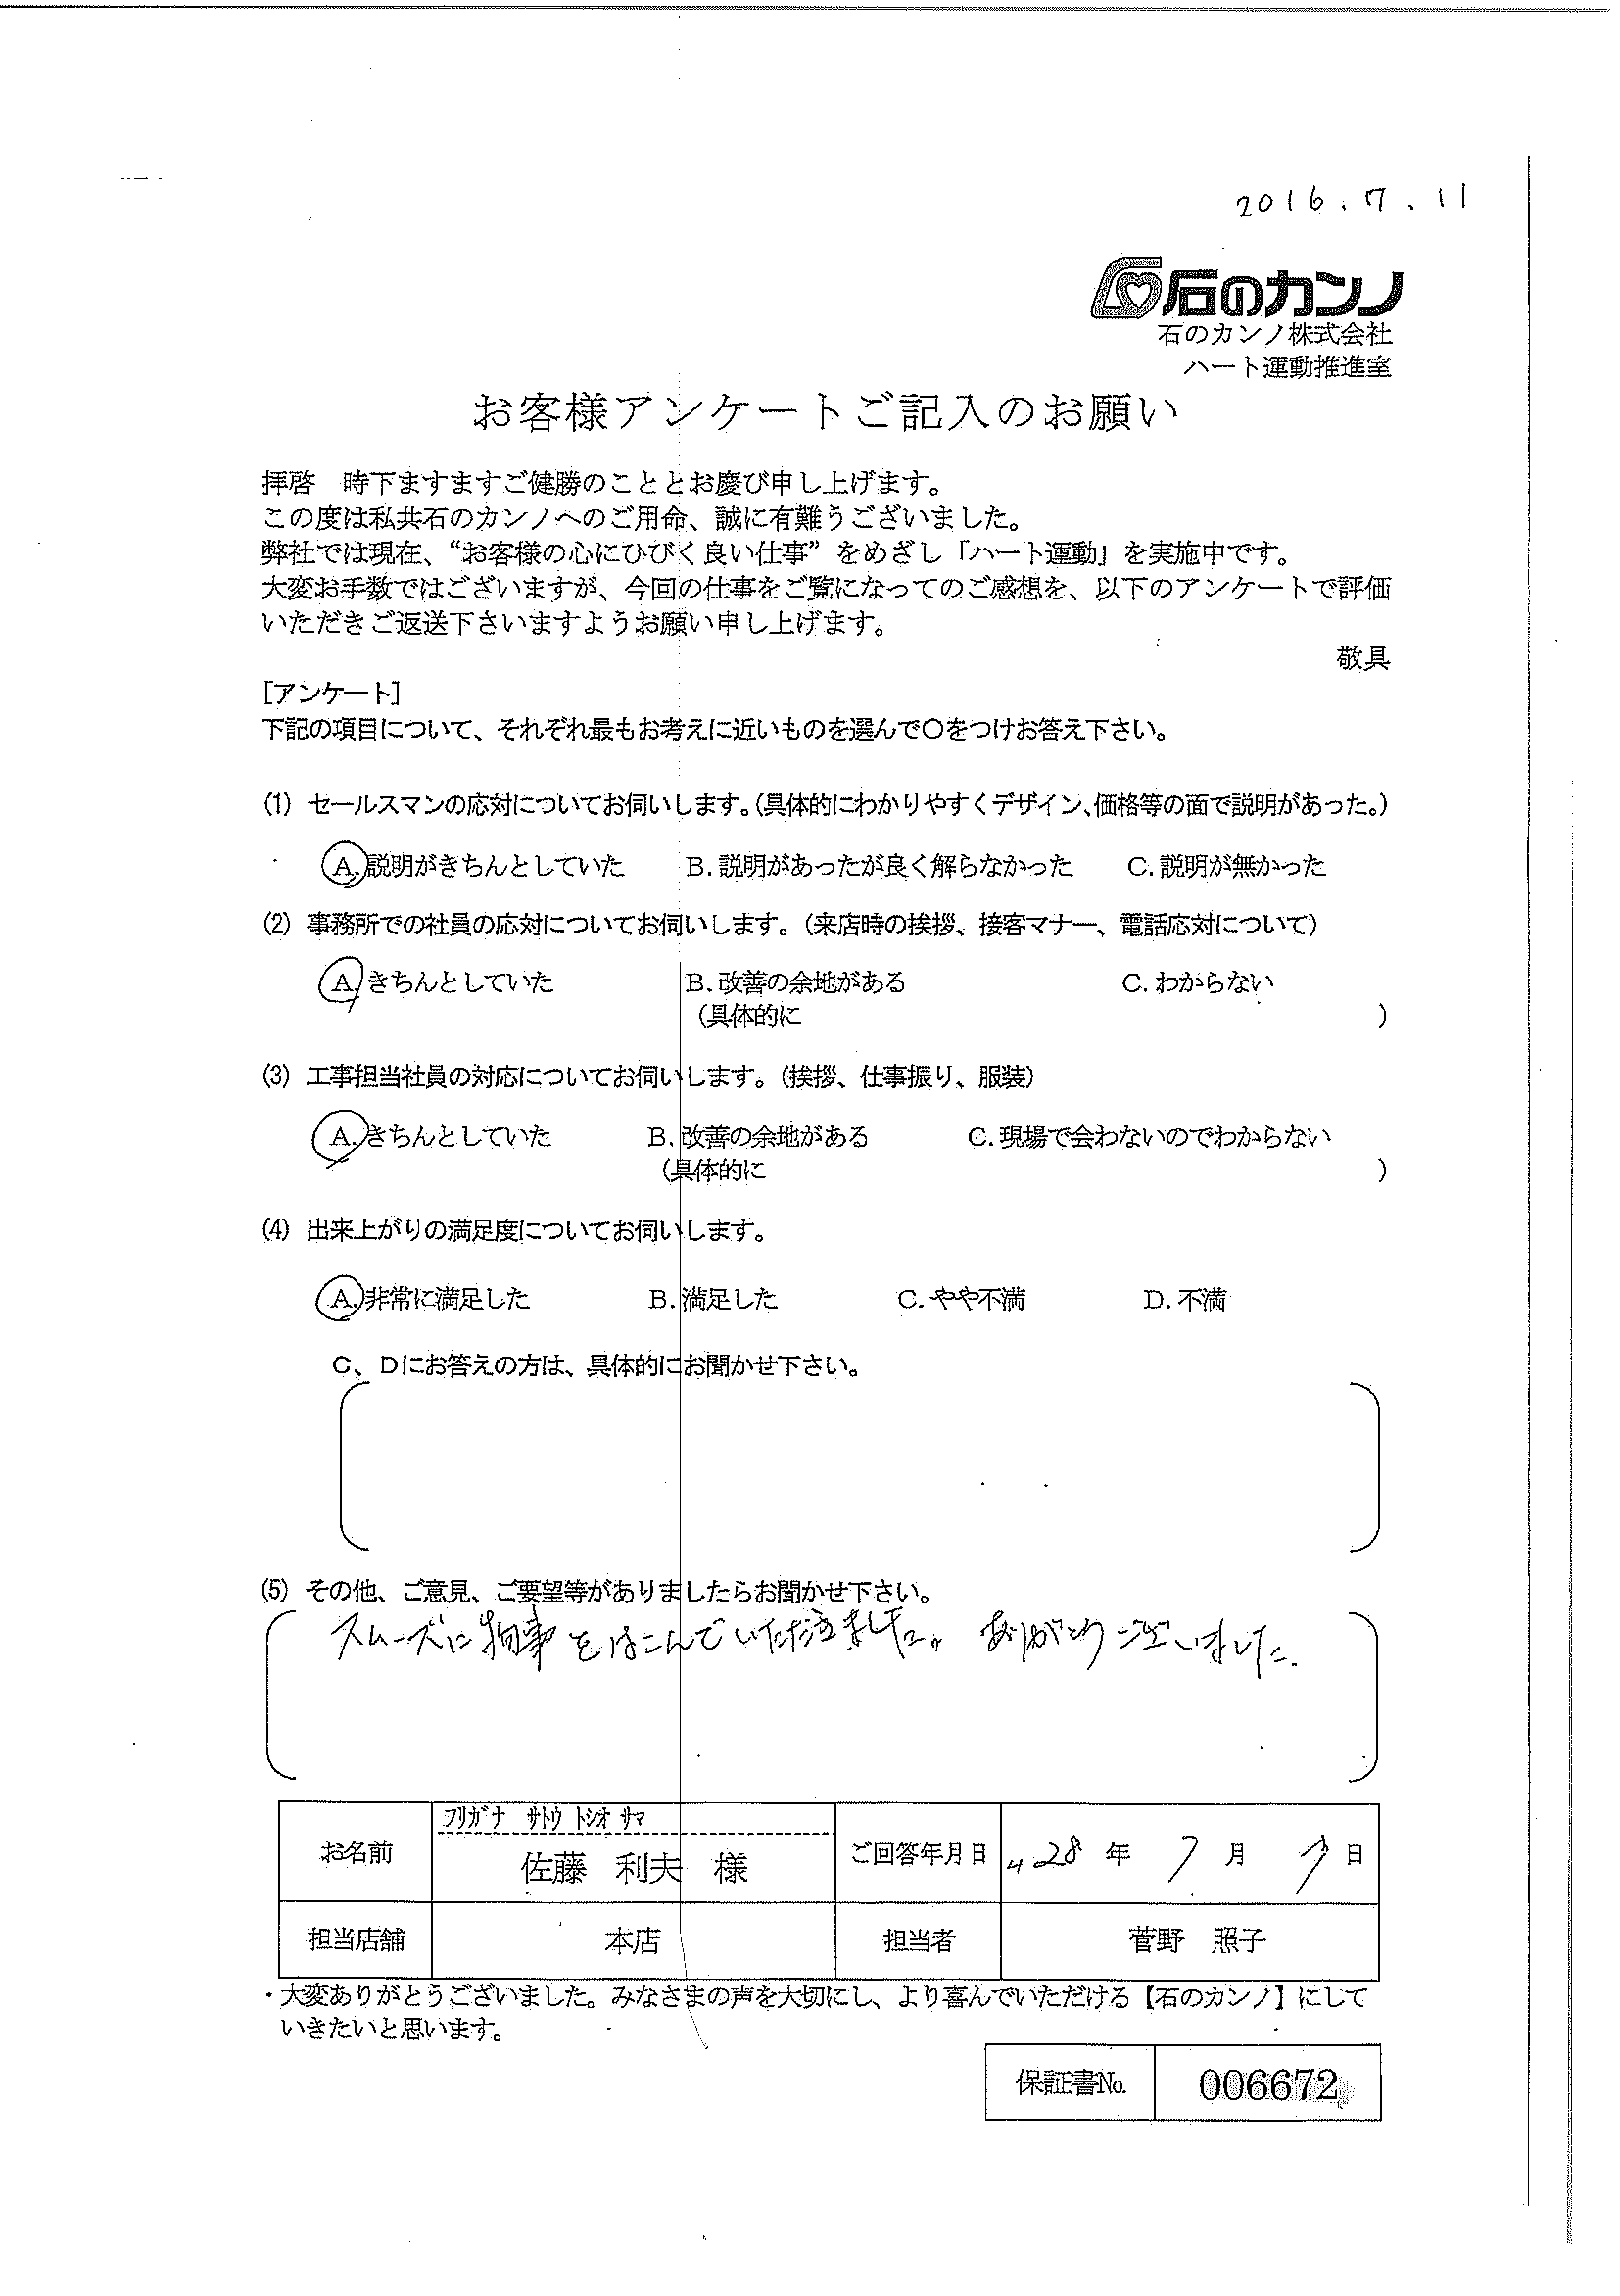 2016.7.11
石のカンノ
石のカンノ株式会社
ハート運動推進室
お客様アンケートご記入のお願い
拝啓　時下ますますご健勝のこととお慶び申し上げます。
この度は私共石のカンノへのご用命、誠に有難うございました。
弊社では現在、“お客様の心にひびく良い仕事”をめざし「ハート運動」を実施中です。
大変お手数ではございますが、今回の仕事をご覧になってのご感想を、以下のアンケートで評価
いただきご返送下さいますようお願い申し上げます。
敬具
[アンケート]
下記の項目について、それぞれ最もお考えに近いものを選んで○をつけお答え下さい。
(1) セールスマンの応対についてお伺いします。(具体的にわかりやすくデザイン、価格等の面で説明があった。)
A. 説明がきちんとしていた　B. 説明があったが良く解らなかった　C. 説明が無かった
(2) 事務所での社員の応対についてお伺いします。(来店時の挨拶、接客マナー、電話応対について)
A. きちんとしていた　B. 改善の余地がある　C. わからない
(具体的に　)
(3) 工事担当社員の対応についてお伺いします。(挨拶、仕事振り、服装)
A. きちんとしていた　B. 改善の余地がある　C. 現場で会わないのでわからない
(具体的に　)
(4) 出来上がりの満足度についてお伺いします。
A. 非常に満足した　B. 満足した　C. やや不満　D. 不満
C、Dにお答えの方は、具体的にお聞かせ下さい。
(5) その他、ご意見、ご要望等がありましたらお聞かせ下さい。
スムーズに物事をはこんでいただきました。ありがとうございました.
フリガナ　サトウ トシオ サマ
お名前　佐藤　利夫　様　ご回答年月日　H28 年 7 月 7 日
担当店舗　本店　担当者　菅野　照子
・大変ありがとうございました。みなさまの声を大切にし、より喜んでいただける【石のカンノ】にして
いきたいと思います。
保証書No.　006672